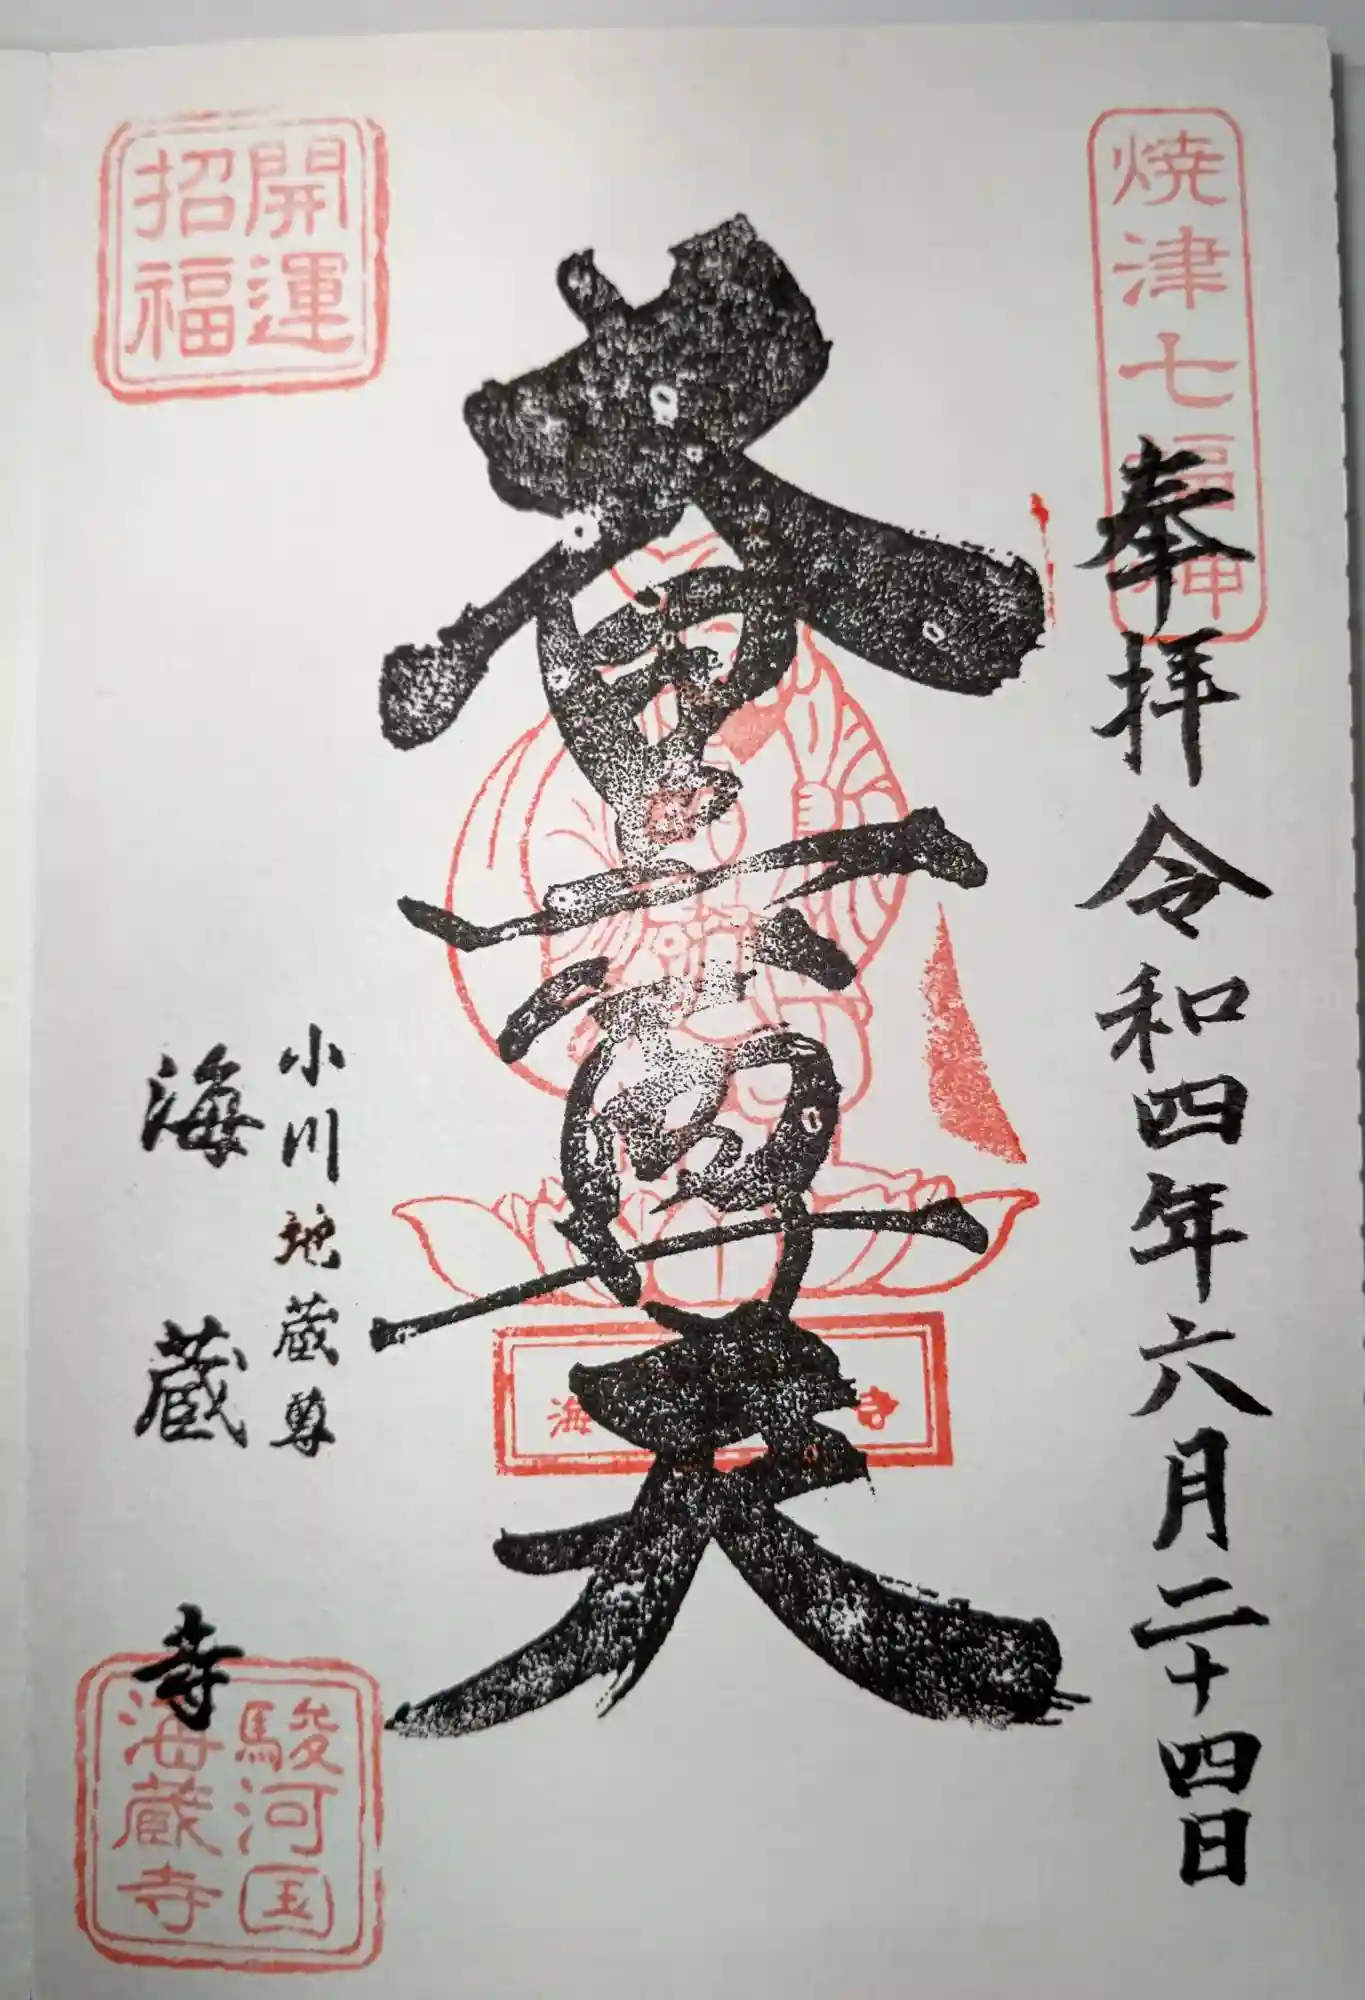 焼津七福神
奉拝 令和四年六月二十四日
大黒尊天
海蔵寺
開運
招福
小川地蔵尊
海蔵寺
駿河国
海蔵寺